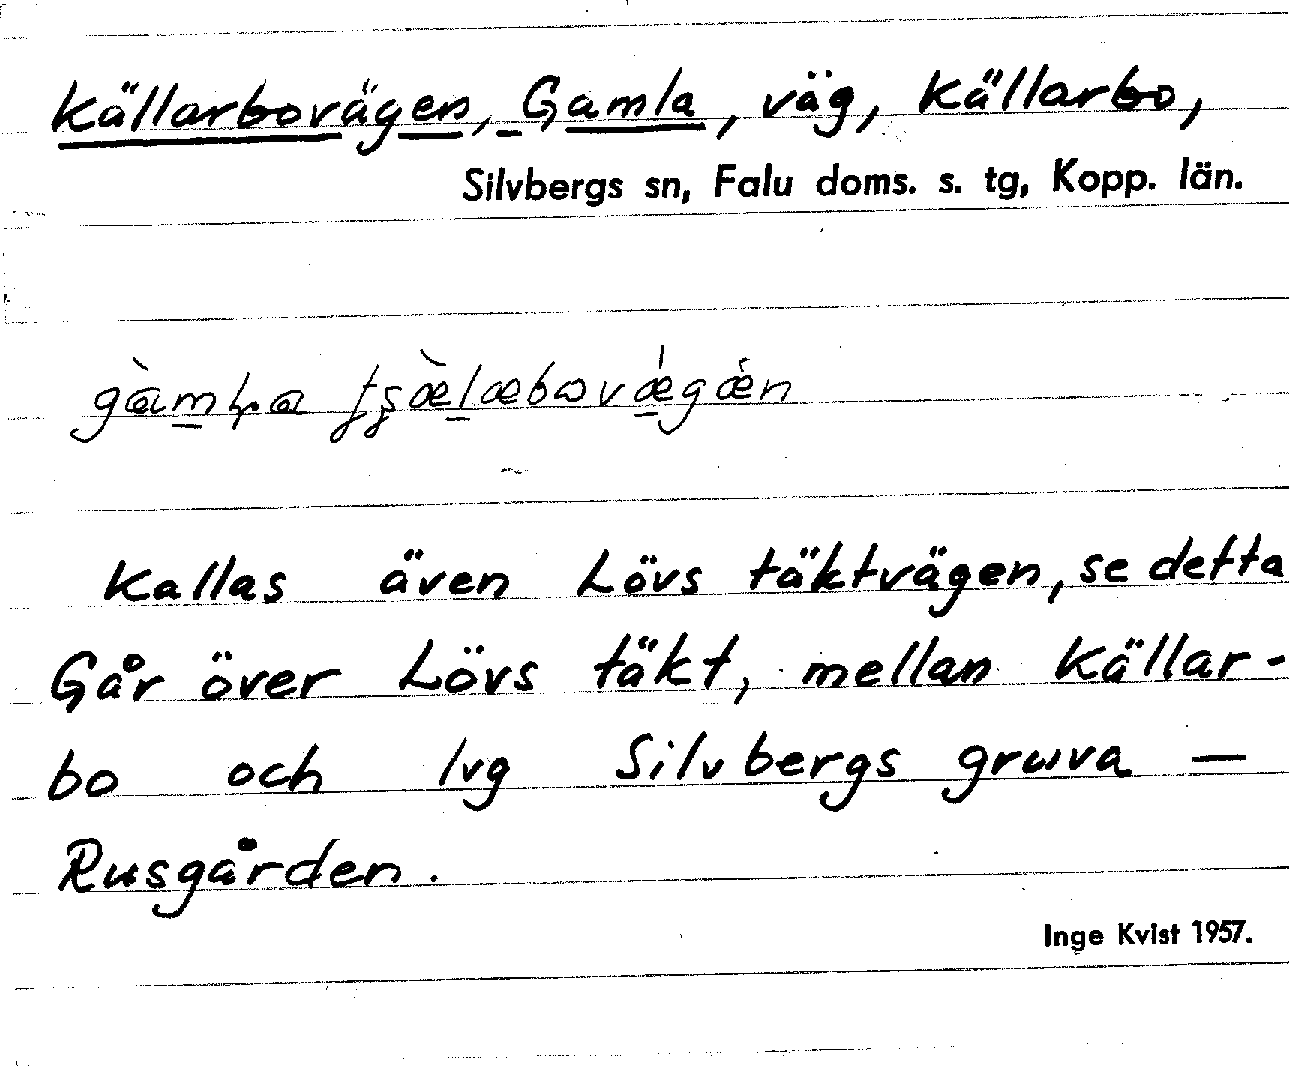 Källarbovägen, Gamla, väg, Källarbo,
Silvbergs sn, Falu doms. s. tg, Kopp. län.
Kallas även Lövs täktvägen, se detta
Går över Lövs täkt, mellan Källar-
bo och lvg Silvbergs gruva —
Rusgården.
Inge Kvist 1957.